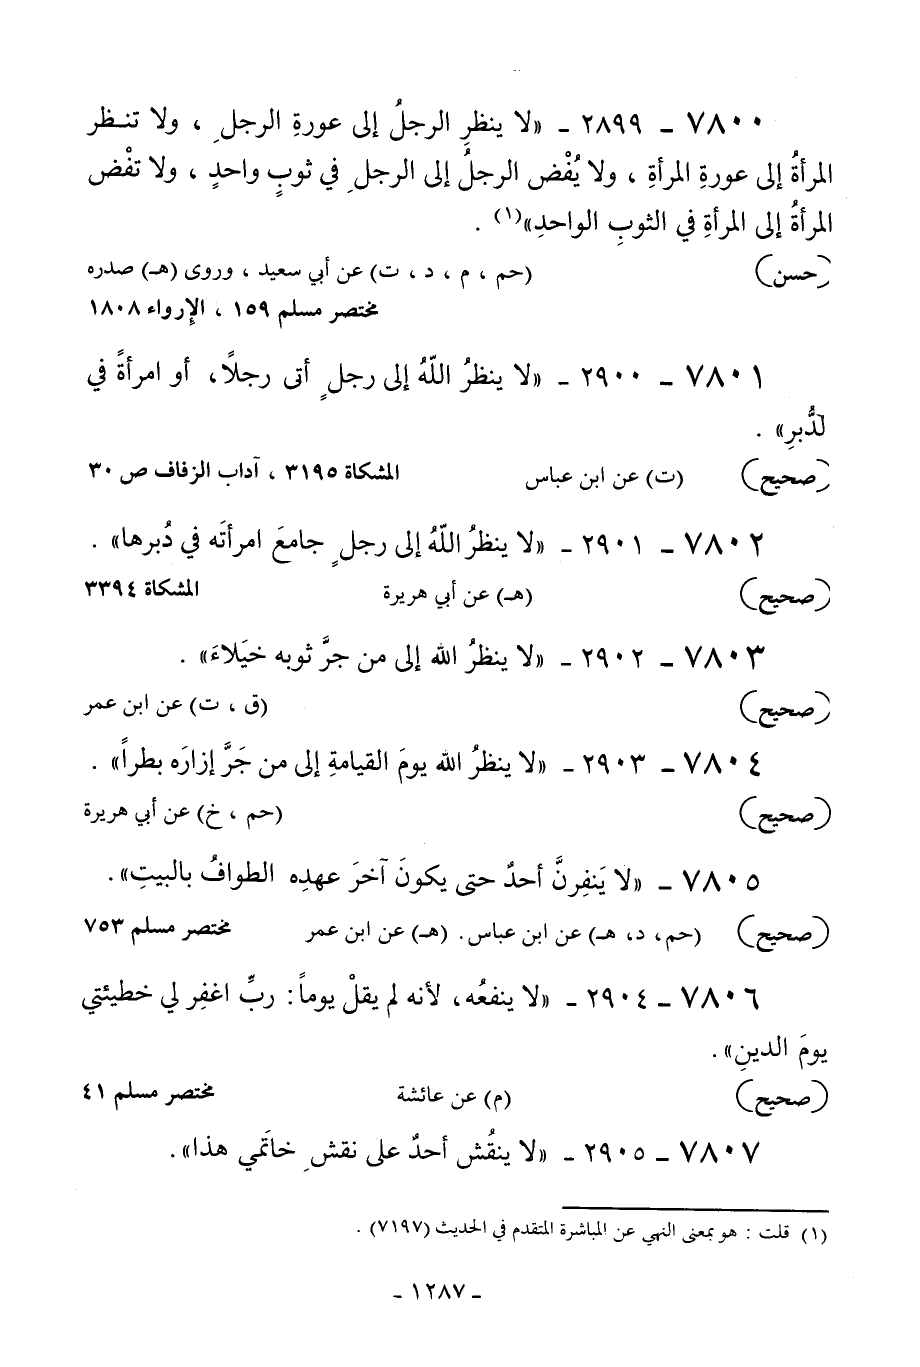 ٧٨٠٠ ـ ٢٨٩٩ ـ «لا ينظرِ الرجلُ إلى عورةِ الرجلِ ، ولا تنـظر
المرأةُ إلى عورةِ المرأةِ ، ولا يُفْض الرجلُ إلى الرجلِ في ثوبٍ واحدٍ ، ولا تفْض
المرأةُ إلى المرأةِ في الثوبِ الواحدِ»(١) .
(حسن) (حم ، م ، د ، ت) عن أبي سعيد ، وروى (هـ) صدره
مختصر مسلم ١٥٩ ، الإرواء ١٨٠٨
٧٨٠١ ـ ٢٩٠٠ ـ «لا ينظرُ اللّهُ إلى رجلٍ أتى رجلًا، أو امرأةً في
لدُّبرِ» .
(صحيح) (ت) عن ابن عباس المشكاة ٣١٩٥ ، آداب الزفاف ص ٣٠
٧٨٠٢ ـ ٢٩٠١ ـ «لا ينظرُ اللّهُ إلى رجلٍ جامعَ امرأتَه في دُبرها» .
(صحيح) (هـ) عن أبي هريرة المشكاة ٣٣٩٤
٧٨٠٣ ـ ٢٩٠٢ ـ «لا ينظرُ الله إلى من جرَّ ثوبه خيَلاءَ» .
(صحيح) (ق ، ت) عن ابن عمر
٧٨٠٤ ـ ٢٩٠٣ ـ «لا ينظرُ الله يومَ القيامةِ إلى من جَرَّ إزارَه بطراً» .
(صحيح) (حم ، خ) عن أبي هريرة
٧٨٠٥ ـ «لا يَنفِرنَّ أحدٌ حتى يكونَ آخرَ عهدِه الطوافُ بالبيتِ».
(صحيح) (حم، د، هـ) عن ابن عباس. (هـ) عن ابن عمر مختصر مسلم ٧٥٣
٧٨٠٦ ـ ٢٩٠٤ ـ «لا ينفعُه، لأنه لم يقلْ يوماً: ربِّ اغفِر لي خطيئتي
يومَ الدينِ».
(صحيح) (م) عن عائشة مختصر مسلم ٤١
٧٨٠٧ ـ ٢٩٠٥ ـ «لا ينقُش أحدٌ على نقشِ خاتَمي هذا».
(١) قلت : هو بمعنى النهي عن المباشرة المتقدم في الحديث (٧١٩٧) .
ـ ١٢٨٧ ـ